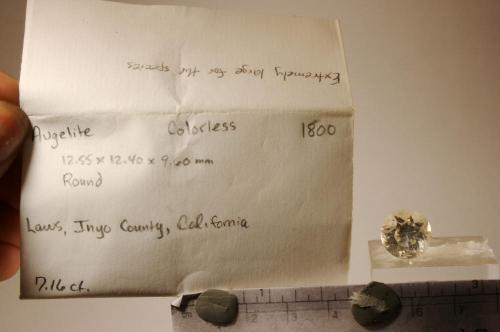 Extremely large for the species
Augelite Colorless 1800
12.55 x 12.40 x 9.60 mm
Round
Laws, Inyo County, California
7.16 ct.
1
2
3
6
7